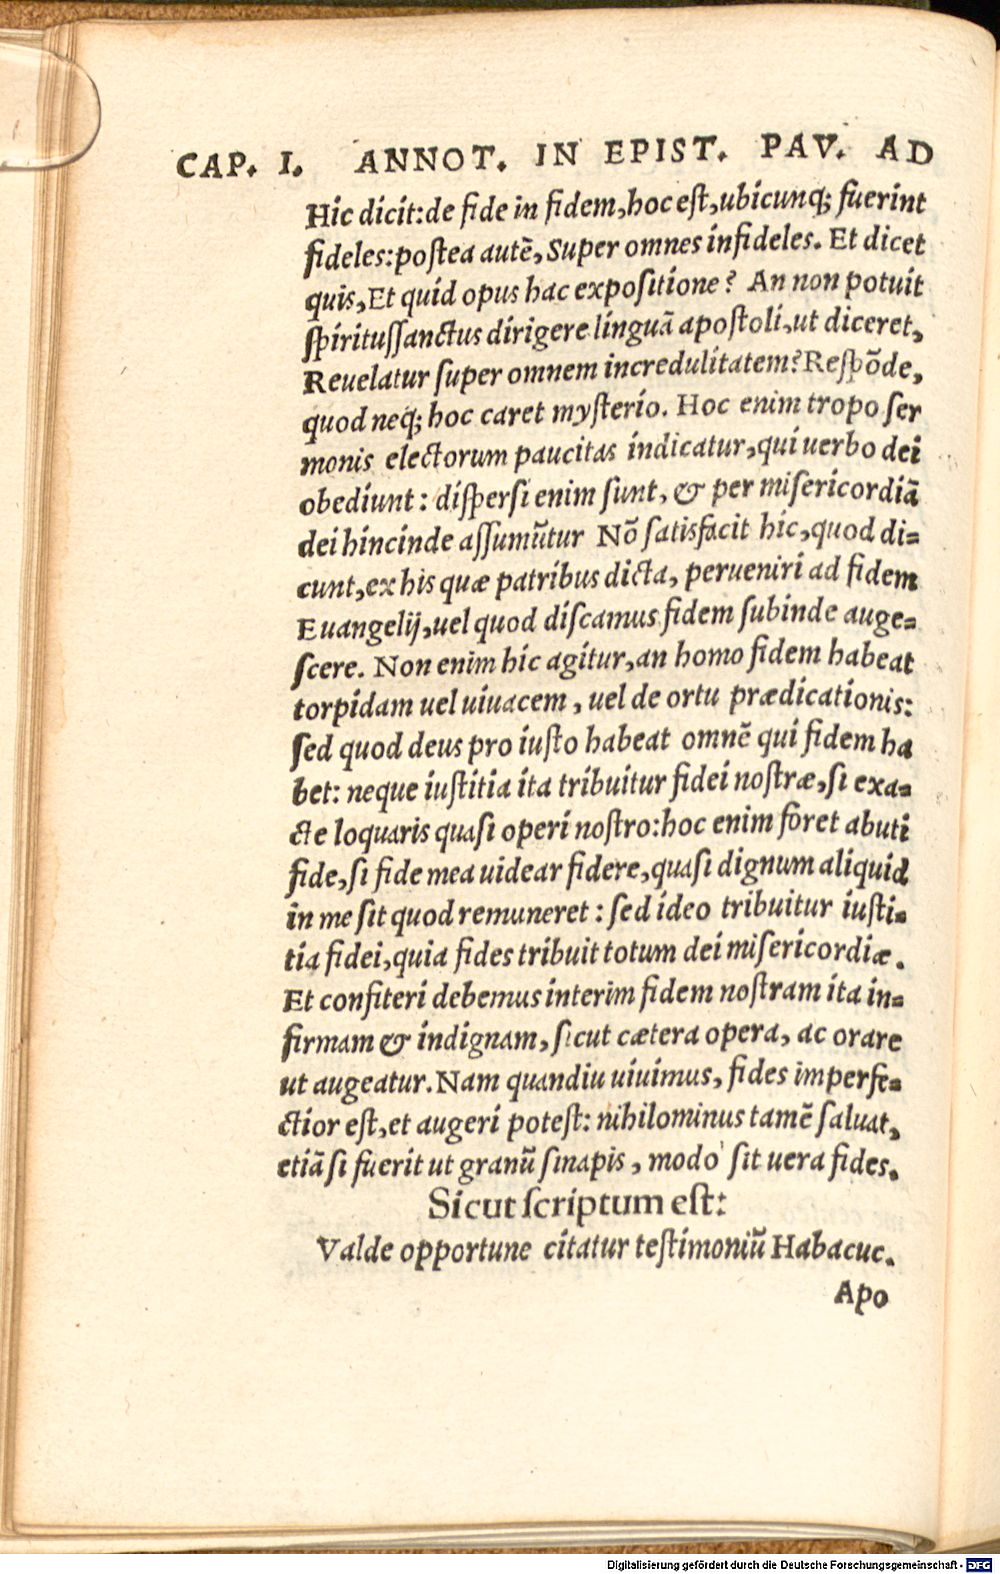 CAP. I. ANNOT. IN EPIST. PAV. AD
Hic dicit:de fide in fidem,hoc est,ubicunq; fuerint
fideles:postea autẽ,Super omnes infideles. Et dicet
quis,Et quid opus hac expositione? An non potuit
spiritussanctus dirigere linguã apostoli,ut diceret,
Reuelatur super omnem incredulitatem?Respõde,
quod neq; hoc caret mysterio. Hoc enim tropo ser
monis electorum paucitas indicatur,qui uerbo dei
obediunt: dispersi enim sunt, & per misericordiã
dei hincinde assumũtur Nõ satisfacit hic,quod di=
cunt,ex his quæ patribus dicta, perueniri ad fidem
Euangelij,uel quod discamus fidem subinde auge=
scere. Non enim hic agitur,an homo fidem habeat
torpidam uel uiuacem, uel de ortu prædicationis:
sed quod deus pro iusto habeat omnẽ qui fidem ha
bet: neque iustitia ita tribuitur fidei nostræ,si exa=
cte loquaris quasi operi nostro:hoc enim foret abuti
fide,si fide mea uidear fidere,quasi dignum aliquid
in me sit quod remuneret: sed ideo tribuitur iusti=
tia fidei,quia fides tribuit totum dei misericordiæ.
Et confiteri debemus interim fidem nostram ita in=
firmam & indignam, sicut cætera opera, ac orare
ut augeatur.Nam quandiu uiuimus, fides imperfe=
ctior est,et augeri potest: nihilominus tamẽ saluat,
etiã si fuerit ut granũ sinapis, modò sit uera fides.
Sicut scriptum est:
Valde opportune citatur testimoniũ Habacuc.
Apo
Digitalisierung gefördert durch die Deutsche Forschungsgemeinschaft - DFG